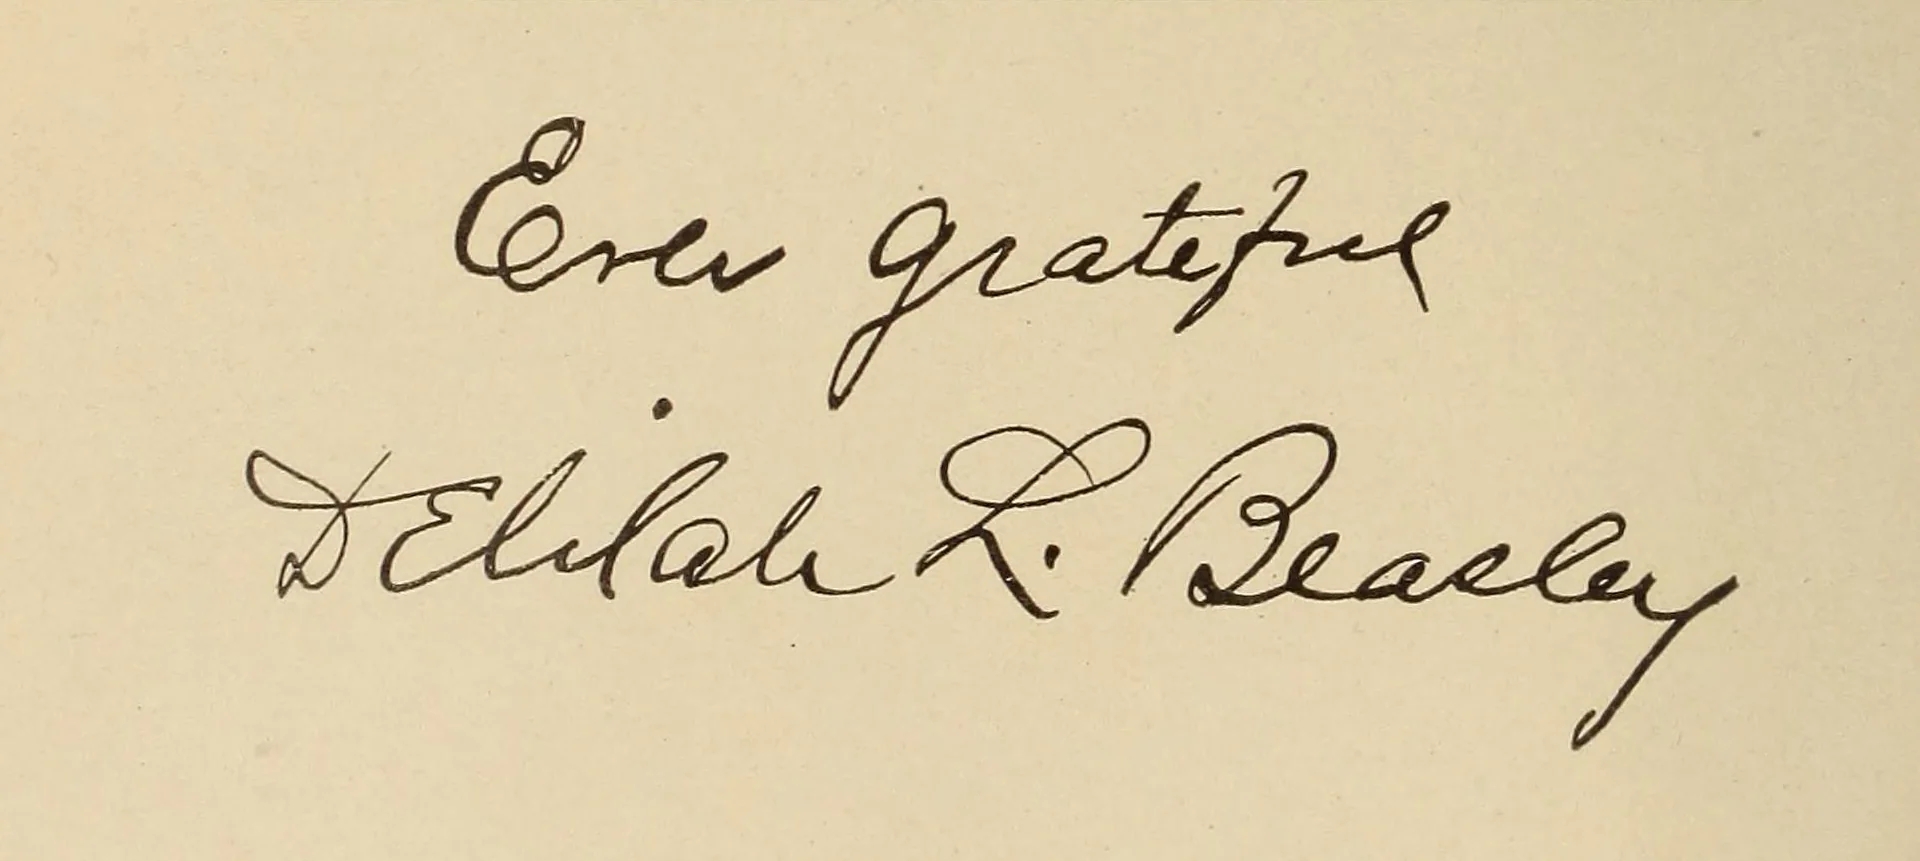 Ever grateful
Delilah L. Beasley